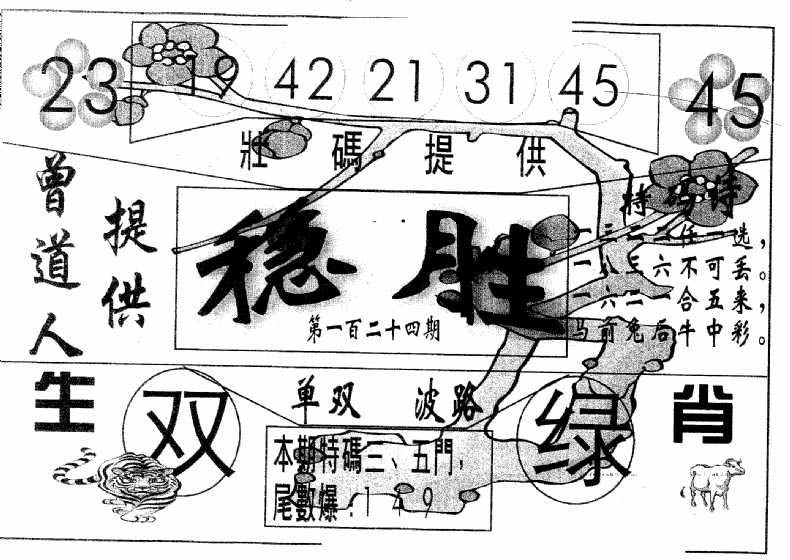 23 19 42 21 31 45 45
壯碼提供
特码诗
曾道人
提供
稳胜
第一百二十四期
一三二二任一选，
一八三六不可丢。
一六二一合五来，
马前兔后牛中彩。
单双 波路
生 双 绿 肖
本期特碼三、五門，
尾數爆：1 4 9